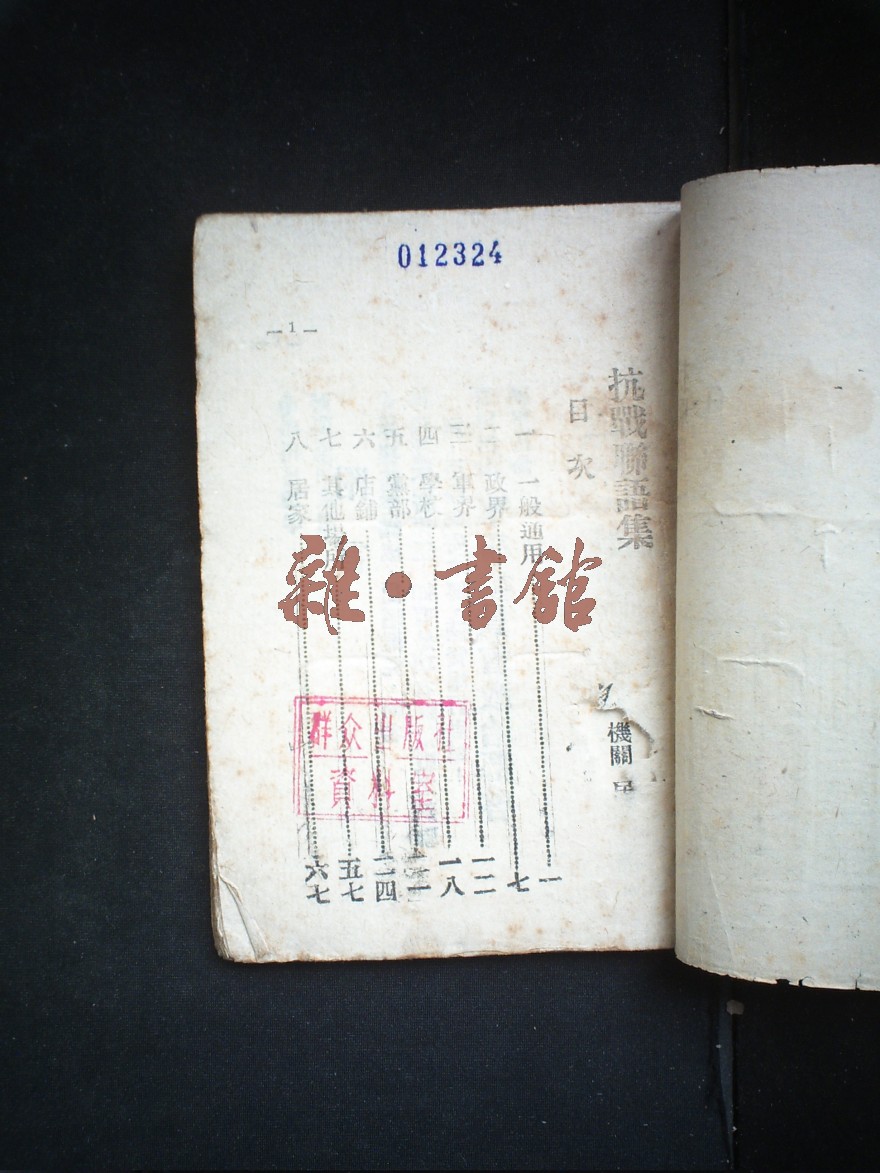 012324
—1—
抗戰聯語集
機關
目次
一 一般通用 一
二 政界 七
三 軍界 一二
四 學校 一八
五 黨部
六 店鋪 二四
七 其他場所 五七
八 居家 六七
群众出版社
資料室
雜·書館